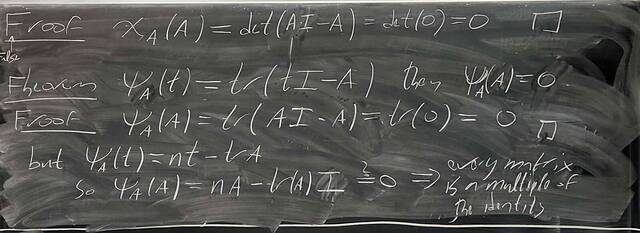 Froof χ_A(A) = det(AI-A) = det(0) = 0 □
False
Fheorem ψ_A(t) = tr(tI-A) then ψ_A(A) = 0
Froof ψ_A(A) = tr(AI-A) = tr(0) = 0 □
but ψ_A(t) = nt - trA
so ψ_A(A) = nA - tr(A)I ?= 0 ⇒ every matrix
is a multiple of
the identity